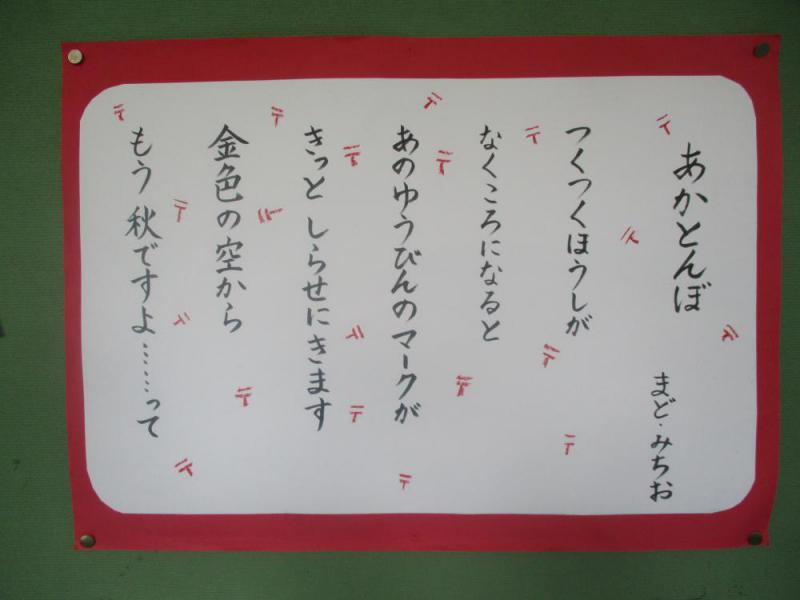 あかとんぼ
まど・みちお
つくつくほうしが
なくころになると
あのゆうびんのマークが
きっと しらせにきます
金色の空から
もう 秋ですよ……って